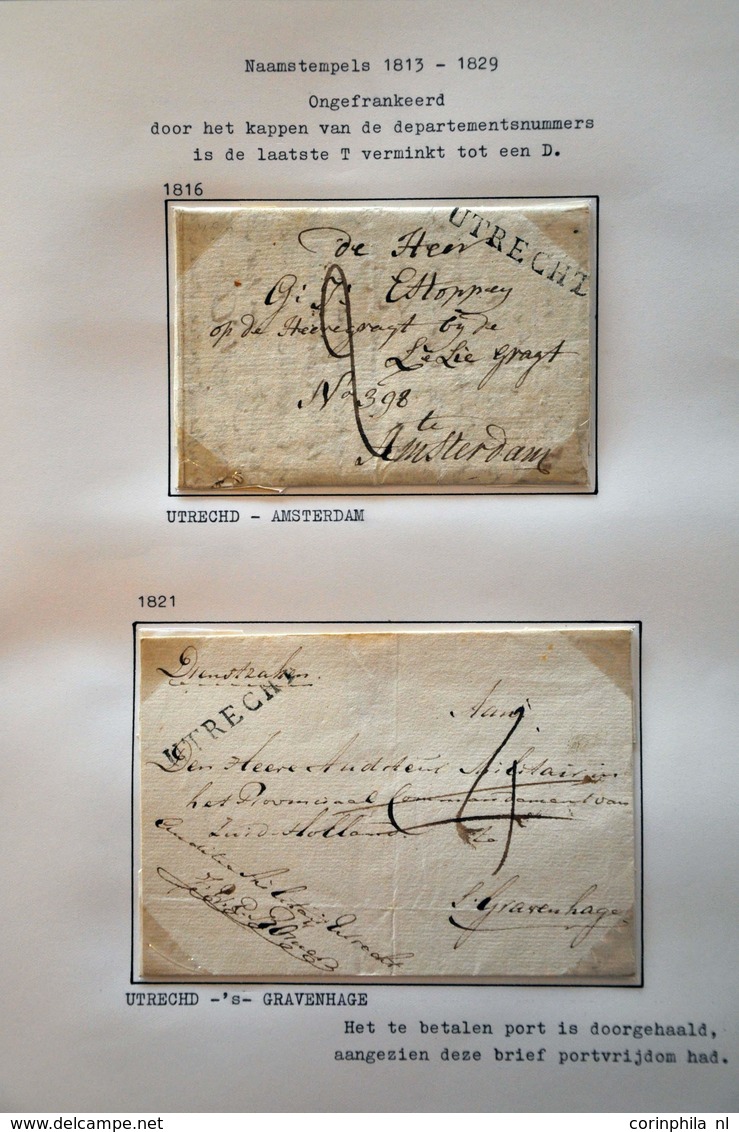 Naamstempels 1813 - 1829
Ongefrankeerd
door het kappen van de departementsnummers
is de laatste T verminkt tot een D.
1816
UTRECHT
de Heer
G: J: Estoppey
op de Heeregragt bij de
Le Lie gragt
No 398
te
Amsterdam
UTRECHD - AMSTERDAM
1821
Dienstzaken.
UTRECHT
Aan
Den Heere Auditeur Militair in
het Provinciaal Commandement van
Zuid-Holland
te
S' Gravenhage
Auditeur Militair Utrecht
UTRECHD -'s- GRAVENHAGE
Het te betalen port is doorgehaald,
aangezien deze brief portvrijdom had.
Delcampe.net
corinphila nl